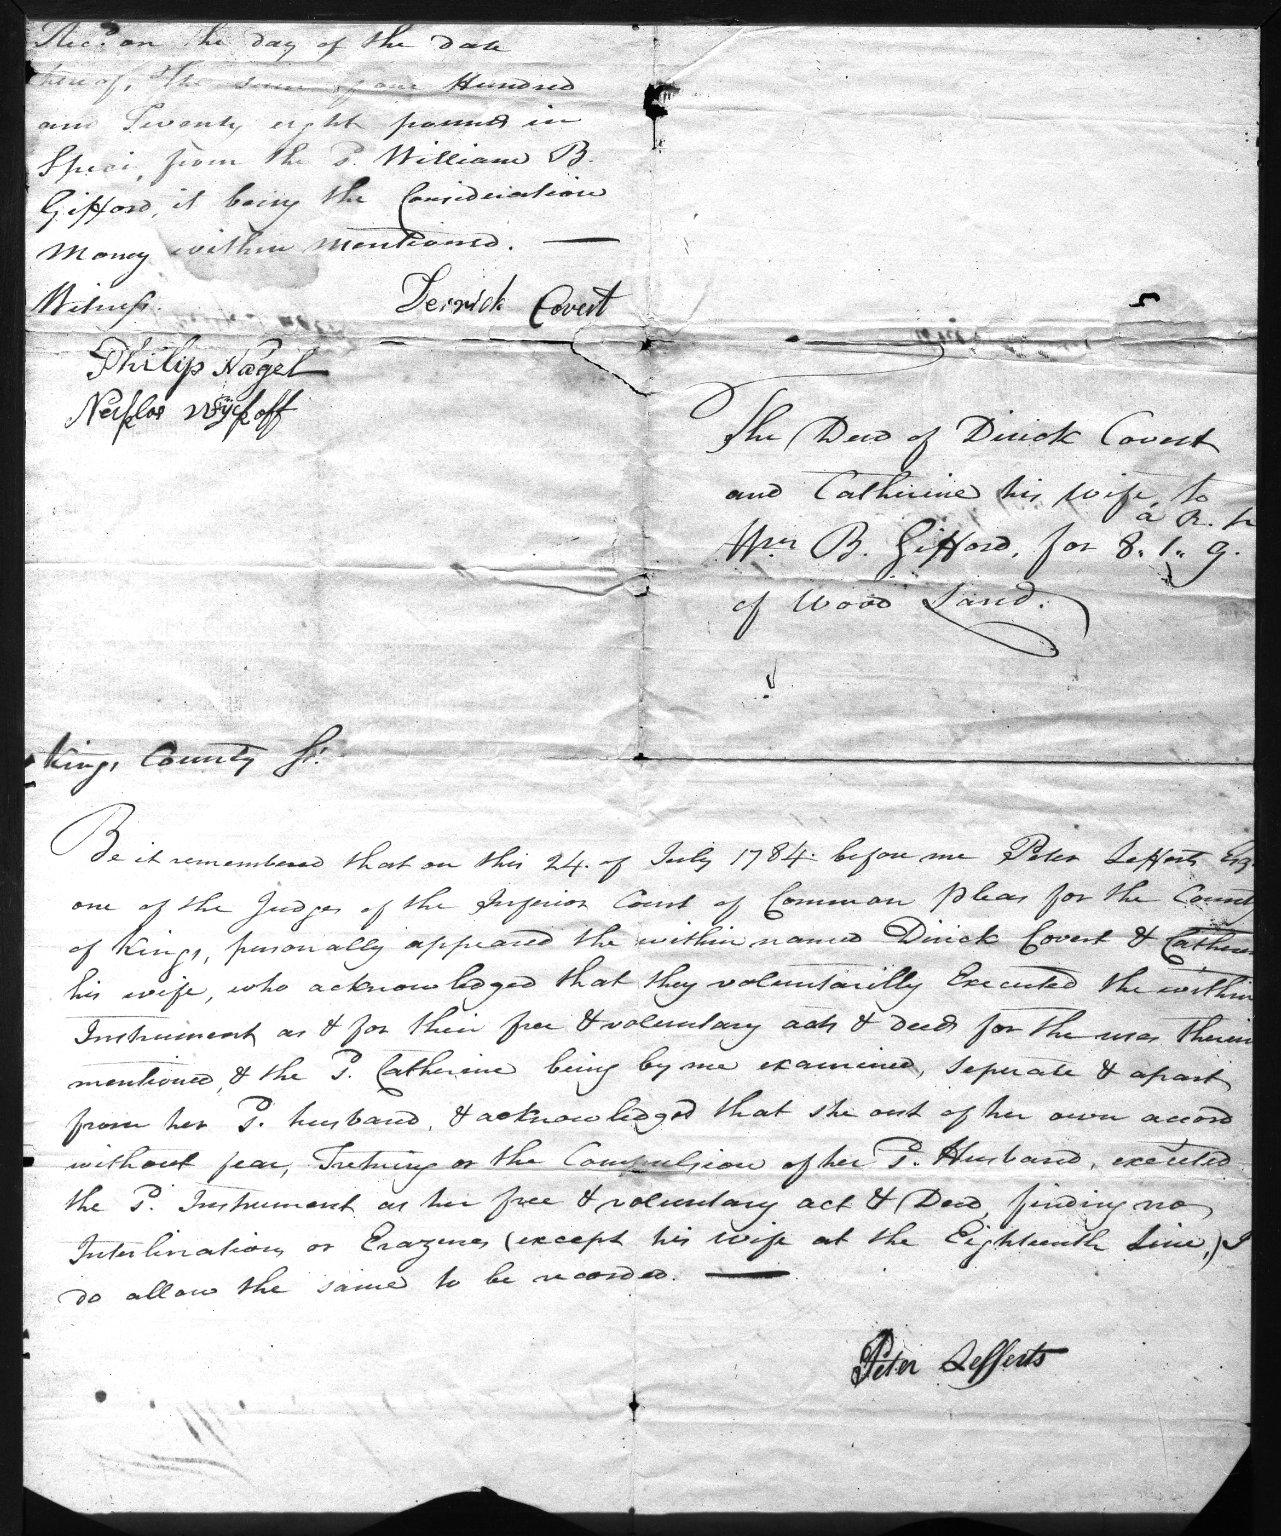 Rec.d on the day of the date
hereof, the sum of one Hundred
and Twenty eight pounds in
Speci, from the S. William B.
Gifford, it being the Consideration
Money within mentioned. —
Witness. Derrick Covert
Philip Nagel
Wyckoff
The Deed of Dirick Covert
and Catherine his wife, to
a R.
Wm B. Gifford, for 8. 1. 9.
of Wood Land.
Kings County Ss.
Be it remembered that on this 24. of July 1784. before me Peter Lefferts Esq.
one of the Judges of the Inferior Court of Common pleas for the County
of Kings, personally appeared the within named Dirick Covert & Catherine
his wife, who acknowledged that they voluntarilly Executed the within
Instrument as & for their free & voluntary acts & deeds for the uses therein
mentioned, & the S. Catherine being by me examined, seperate & apart
from her S. husband, & acknowledged that she out of her own accord
without fear, Tretning or the Compulsion of her S. Husband, executed
the S. Instrument as her free & voluntary act & Deed, finding no
Interlinations or Erazures (except his wife at the Eighteenth Line,) I
do allow the same to be recorded. —
Peter Lefferts